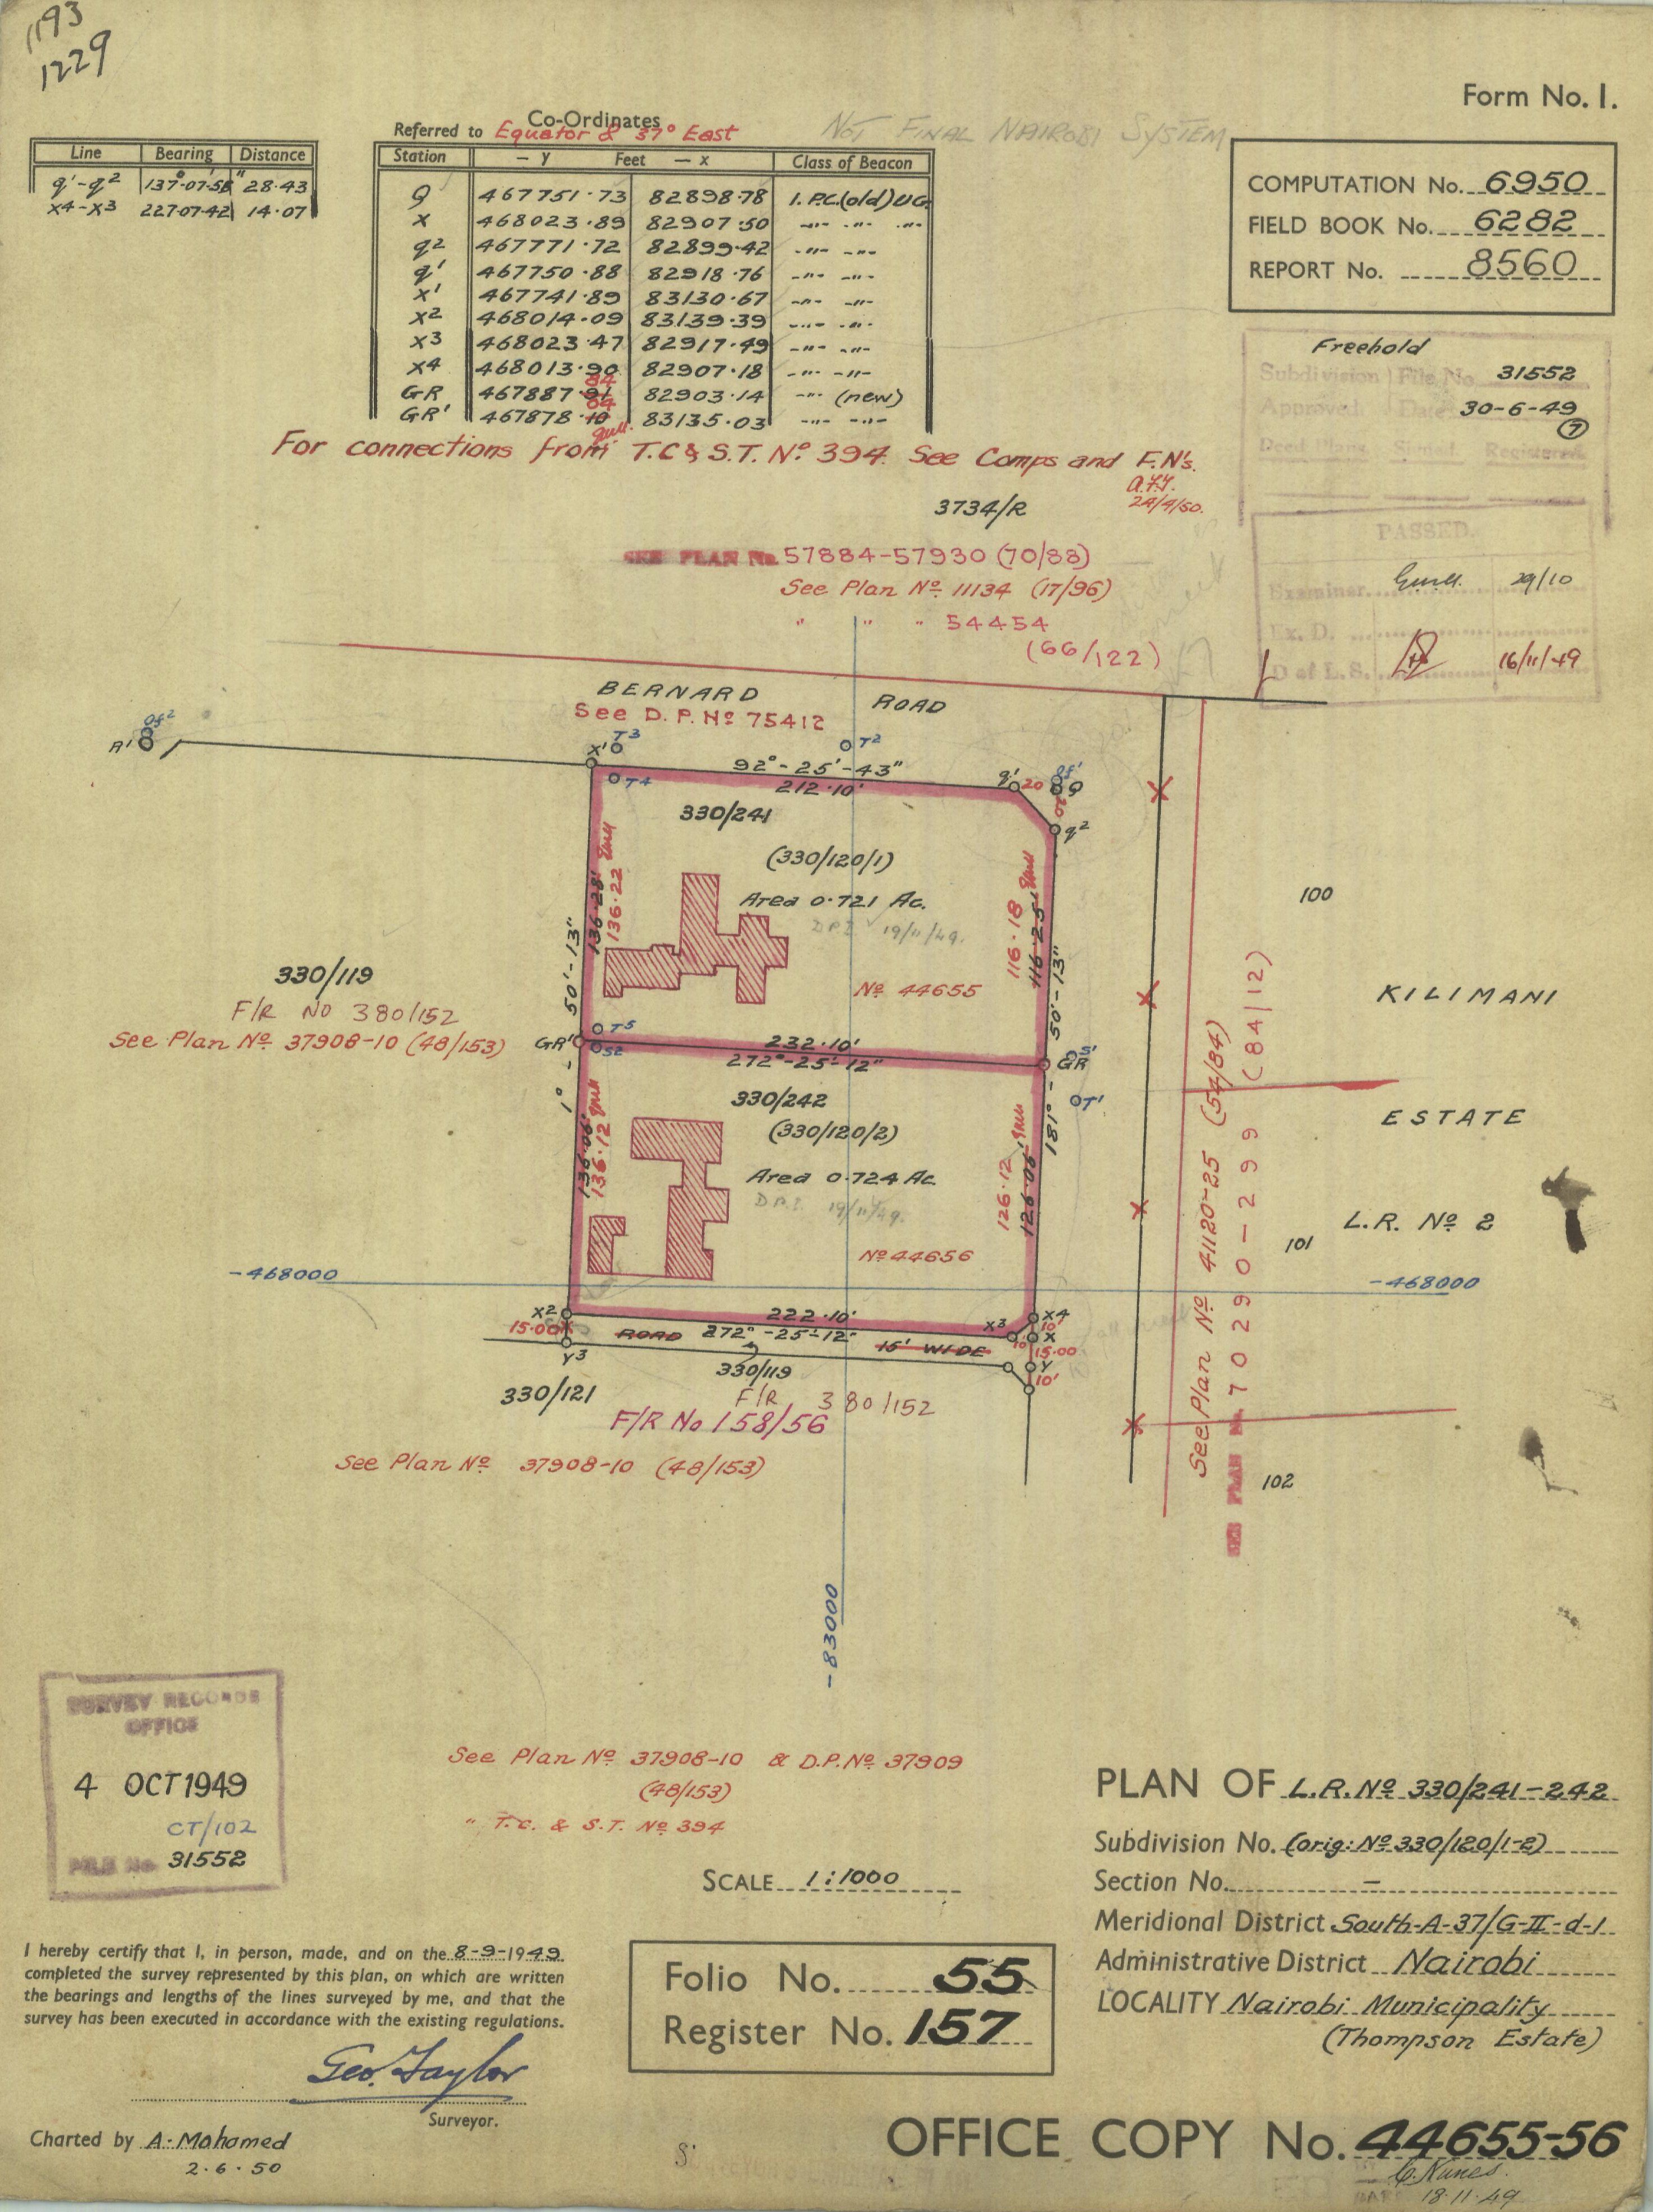 1193
1229
Form No. 1.
Co-Ordinates
Referred to Equator & 37° East
NOT FINAL NAIROBI SYSTEM
Line Bearing Distance
q'-q² 137°-07-58" 28·43
x4-x3 227-07-42 14·07
Station - Y Feet - X Class of Beacon
Q 467751·73 82898·78 I.P.C.(old) U.G.
X 468023·89 82907·50 -"- -"- -"-
q² 467771·72 82899·42 -"- -"-
q' 467750·88 82918·76 -"- -"-
X' 467741·89 83130·67 -"- -"-
X2 468014·09 83139·39 -"- -"-
X3 468023·47 82917·49 -"- -"-
X4 468013·90 82907·18 -"- -"-
GR 467887·91 84 82903·14 -"- (new)
GR' 467878·10 04 83135·03 -"- -"-
COMPUTATION No. 6950
FIELD BOOK No. 6282
REPORT No. 8560
Freehold
Subdivision File No. 31552
Approved. Date 30-6-49
7
Deed Plans Signed Registered
For connections from T.C & S.T. Nº 394. See Comps and F.N's.
A.F.Y.
24/4/50.
3734/R
PASSED.
Examiner 29/10
Ex. D.
D of L.S. 16/11/49
SEE PLAN No. 57884-57930 (70/88)
See Plan Nº 11134 (17/96)
" " " 54454
(66/122)
BERNARD ROAD
See D.P. Nº 75412
R' Of²
X' T3
T2
T4
92°-25'-43"
212·10'
q' 20 Of' Q
20
q²
330/241
(330/120/1)
Area 0·721 Ac.
D.P.I. 19/11/49.
Nº 44655
136·28'
136·22
50'-13"
116·18
116·25'
50'-13"
100
330/119
F/R No 380/152
See Plan Nº 37908-10 (48/153)
KILIMANI
GR' T5
S2
232·10'
272°-25'-12"
GR S'
T'
1° -
181° -
330/242
(330/120/2)
Area 0·724 Ac.
D.P.I. 19/11/49.
Nº 44656
136·06'
136·12
126·12
126·06'
ESTATE
L.R. Nº 2
101
See Plan Nº 41120-25 (54/84)
SEE PLAN No. 70290-299 (84/12)
-468000
-468000
X2
15·00
Y3
222·10'
ROAD 272°-25'-12" 15' WIDE
X3
X4
10'
X
10'
15·00
Y
10'
330/119
F/R 380/152
330/121
F/R No 158/56
See Plan Nº 37908-10 (48/153)
102
-83000
SURVEY RECORDS
OFFICE
4 OCT 1949
CT/102
FILE No. 31552
See Plan Nº 37908-10 & D.P. Nº 37909
(48/153)
" T.C. & S.T. Nº 394
SCALE 1:1000
PLAN OF L.R. Nº 330/241-242
Subdivision No. (orig: Nº 330/120/1-2)
Section No. -
Meridional District South-A-37/G-II-d-1
Administrative District Nairobi
LOCALITY Nairobi Municipality
(Thompson Estate)
I hereby certify that I, in person, made, and on the 8-9-1949
completed the survey represented by this plan, on which are written
the bearings and lengths of the lines surveyed by me, and that the
survey has been executed in accordance with the existing regulations.
Geo. Taylor
Surveyor.
Charted by A. Mohamed
2·6·50
Folio No. 55
Register No. 157
OFFICE COPY No. 44655-56
C. Nunes.
18·11·49